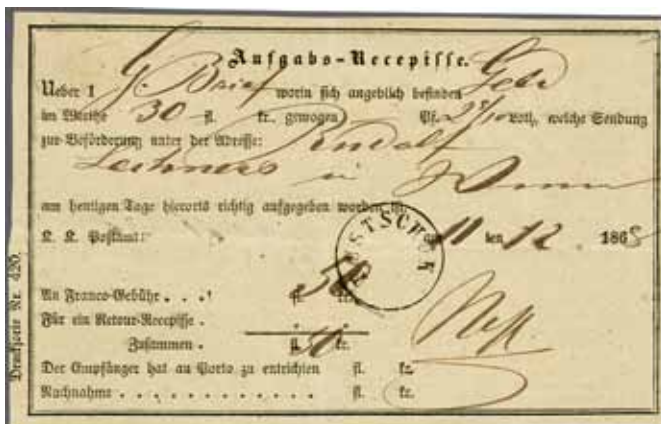 Aufgabs-Recepisse.
Ueber 1 G. Brief worin sich angeblich befinden Geld
im Werthe 30 fl. kr., gewogen Pf. 2 8/10 Loth, welche Sendung
zur Beförderung unter der Adresse: Rudolf
Lechners in Wien
am heutigen Tage hierorts richtig aufgegeben worden ist.
K. K. Postamt: am 11 ten 12 1868
An Franco-Gebühr . . . fl. 50 kr.
Für ein Retour-Recepisse .
Zusammen . fl. 50 kr.
Der Empfänger hat an Porto zu entrichten fl. kr.
Nachnahme . . . . . . . . . . . . fl. kr.
Drucksorte Nr. 420.